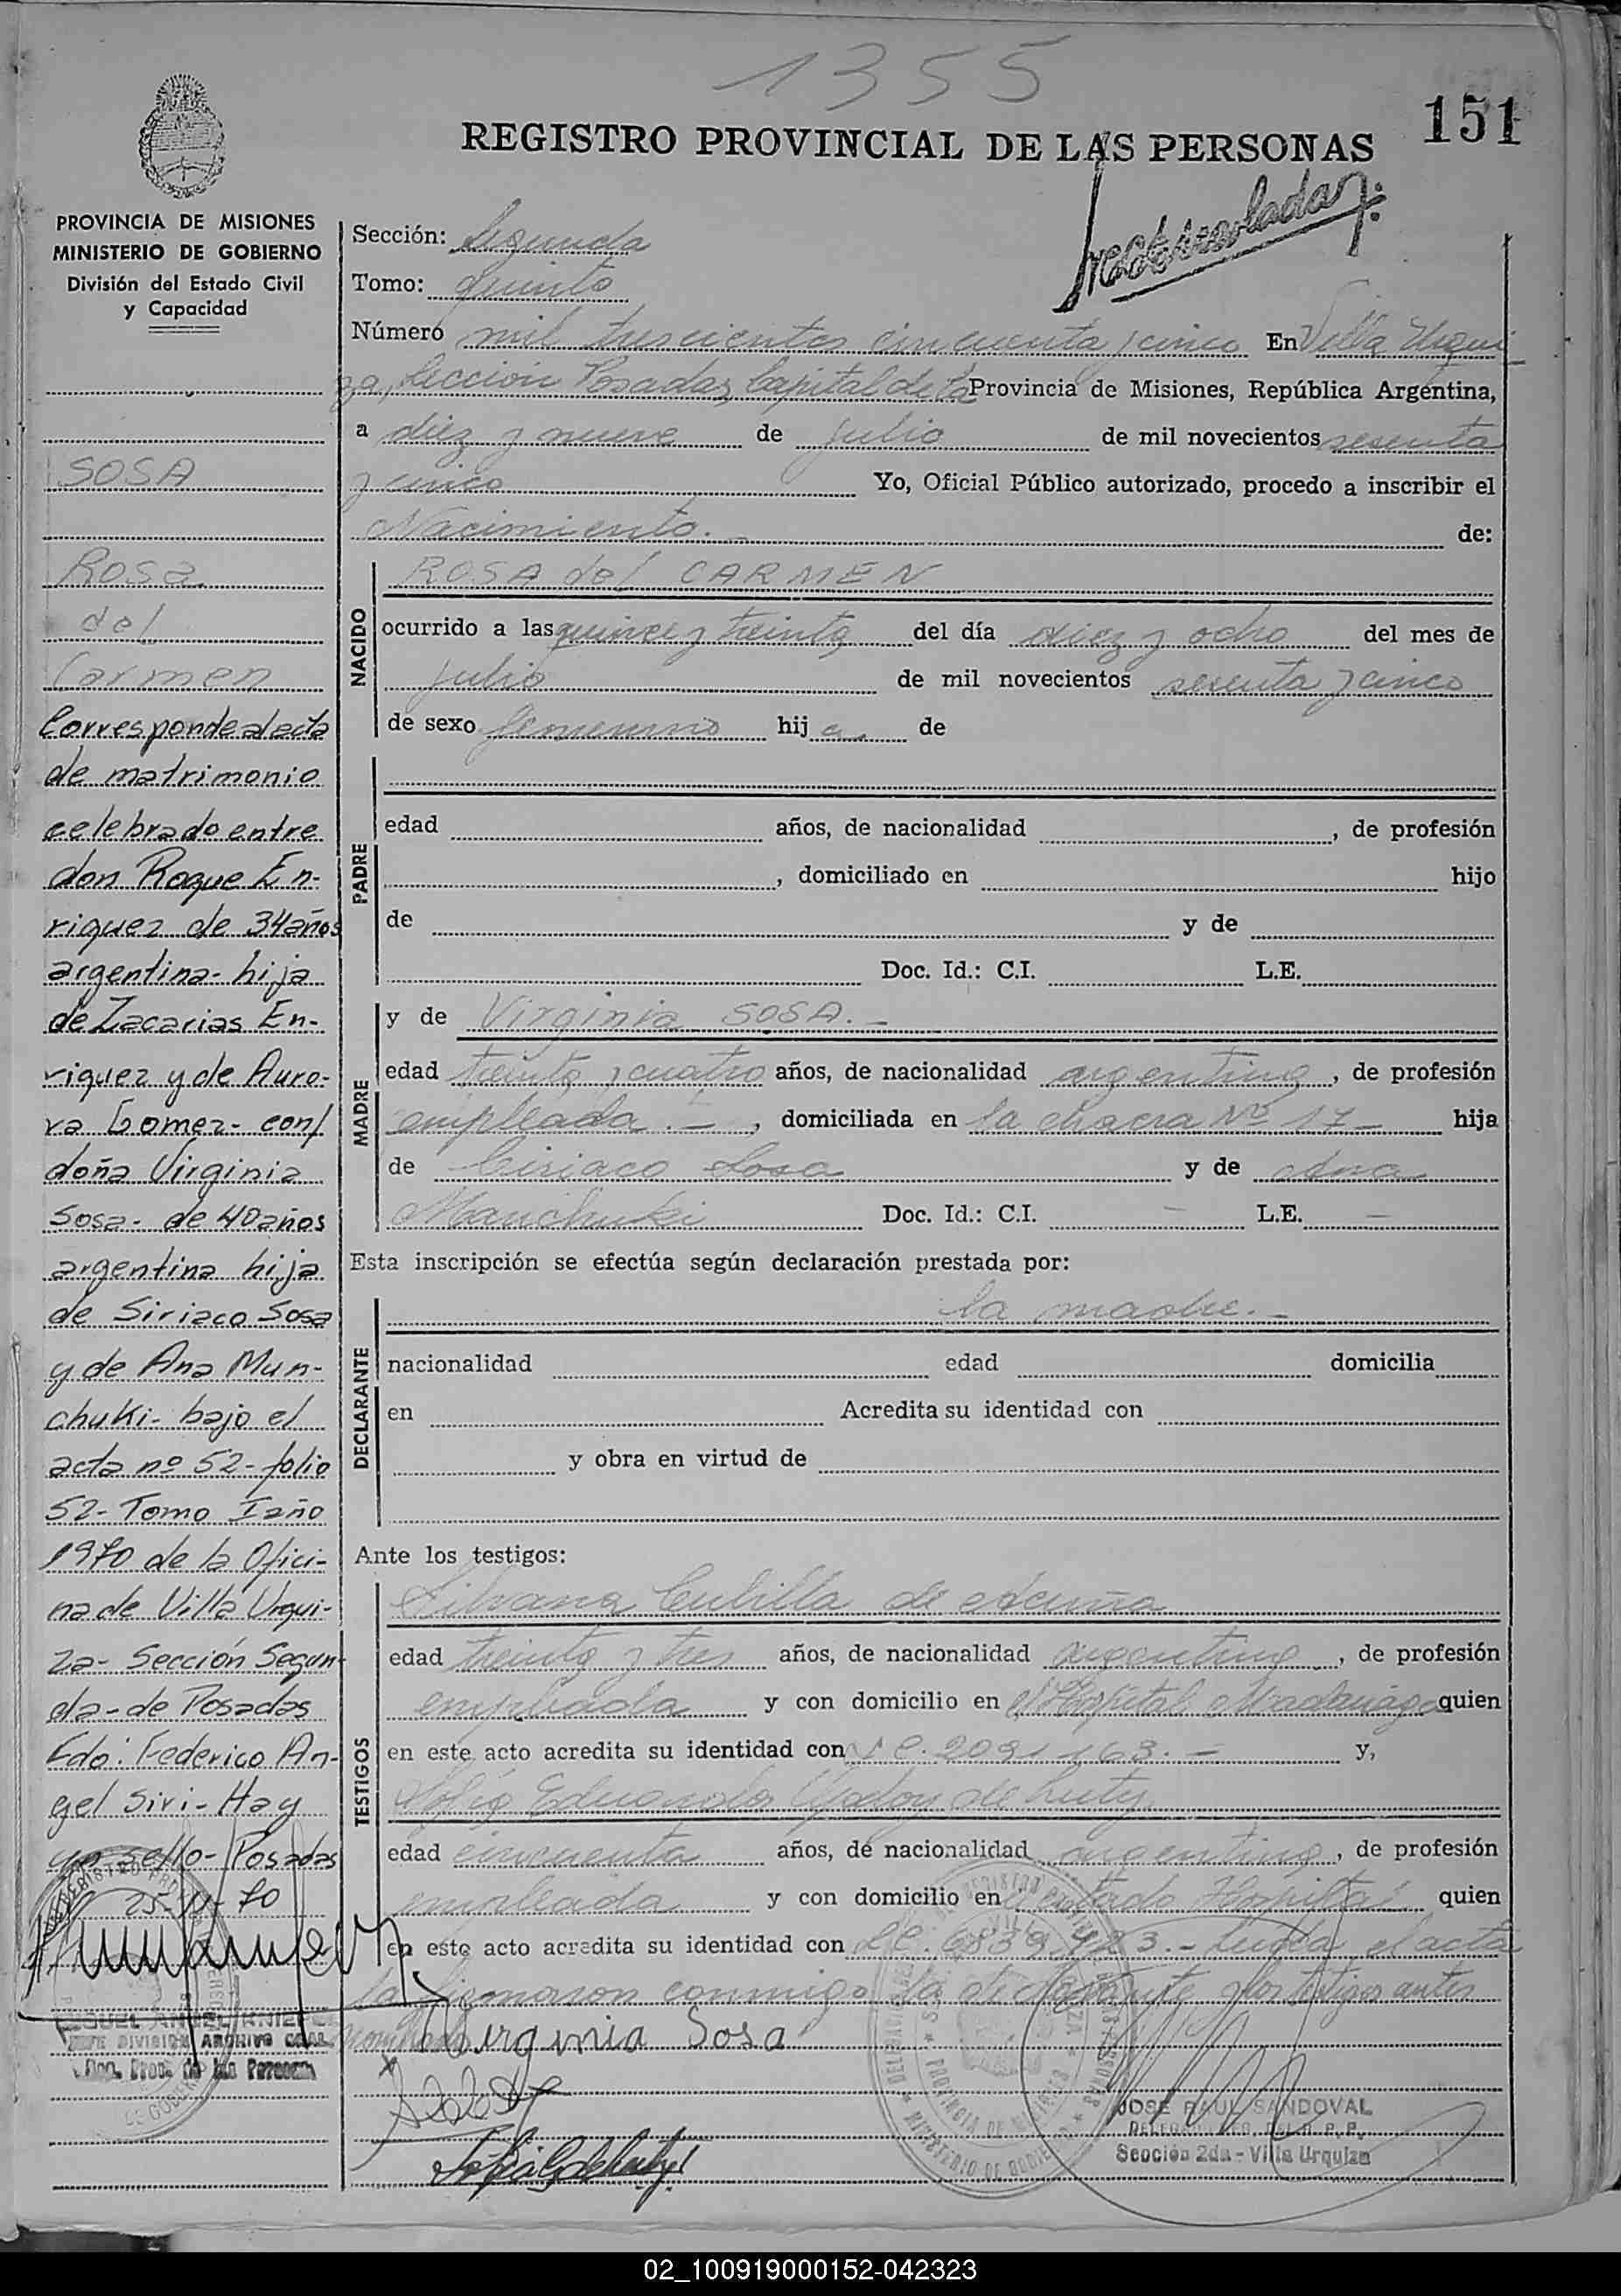 1355
151
REGISTRO PROVINCIAL DE LAS PERSONAS
PROVINCIA DE MISIONES
MINISTERIO DE GOBIERNO
División del Estado Civil
y Capacidad
SOSA
Rosa
del
Carmen
Corresponde al acta
de matrimonio
celebrado entre
don Roque En-
riquez de 34 años
argentina- hija
de Zacarias En-
riquez y de Auro-
ra Gomez- con/
doña Virginia
Sosa- de 40 años
argentina hija
de Siriaco Sosa
y de Ana Mun-
chuki- bajo el
acta nº 52- folio
52- Tomo I año
1970 de la Ofici-
na de Villa Urqui-
za- Sección Segun-
da- de Posadas
Fdo: Federico An-
gel Siri- Hay
un sello- Posadas
25-11-70
DIVISION ARCHIVO GRAL
Sección: Segunda
Tomo: Quinto
Número mil trescientos cincuenta y cinco En Villa Urqui
za, Sección Posadas, Capital de la Provincia de Misiones, República Argentina,
a diez y nueve de julio de mil novecientos sesenta
y cinco Yo, Oficial Público autorizado, procedo a inscribir el
Nacimiento.- de:
NACIDO
ROSA del CARMEN
ocurrido a las quince y treinta del día diez y ocho del mes de
julio de mil novecientos sesenta y cinco
de sexo femenino hija de
PADRE
edad años, de nacionalidad , de profesión
, domiciliado en hijo
de y de
Doc. Id.: C.I. L.E.
MADRE
y de Virginia SOSA.-
edad treinta y cuatro años, de nacionalidad argentina, de profesión
empleada.-, domiciliada en la chacra Nº 17- hija
de Ciriaco Sosa y de Ana
Manchuki Doc. Id.: C.I. - L.E. -
Esta inscripción se efectúa según declaración prestada por:
DECLARANTE
la madre.-
nacionalidad edad domicilia
en Acredita su identidad con
y obra en virtud de
Ante los testigos:
TESTIGOS
Silvana Cubilla de Acuña
edad treinta y tres años, de nacionalidad argentina, de profesión
empleada y con domicilio en el Hospital Madariaga quien
en este acto acredita su identidad con L C. 2091163.- y,
Sofia Eduarda Godoy de
edad cincuenta años, de nacionalidad argentina, de profesión
empleada y con domicilio en citado Hospital quien
en este acto acredita su identidad con L C. 6839.423.- Leida el acta
la firmaron conmigo la declarante y los testigos antes
nombrados
Virginia Sosa
JOSE RAUL SANDOVAL
Sección 2da - Villa Urquiza
02_100919000152-042323